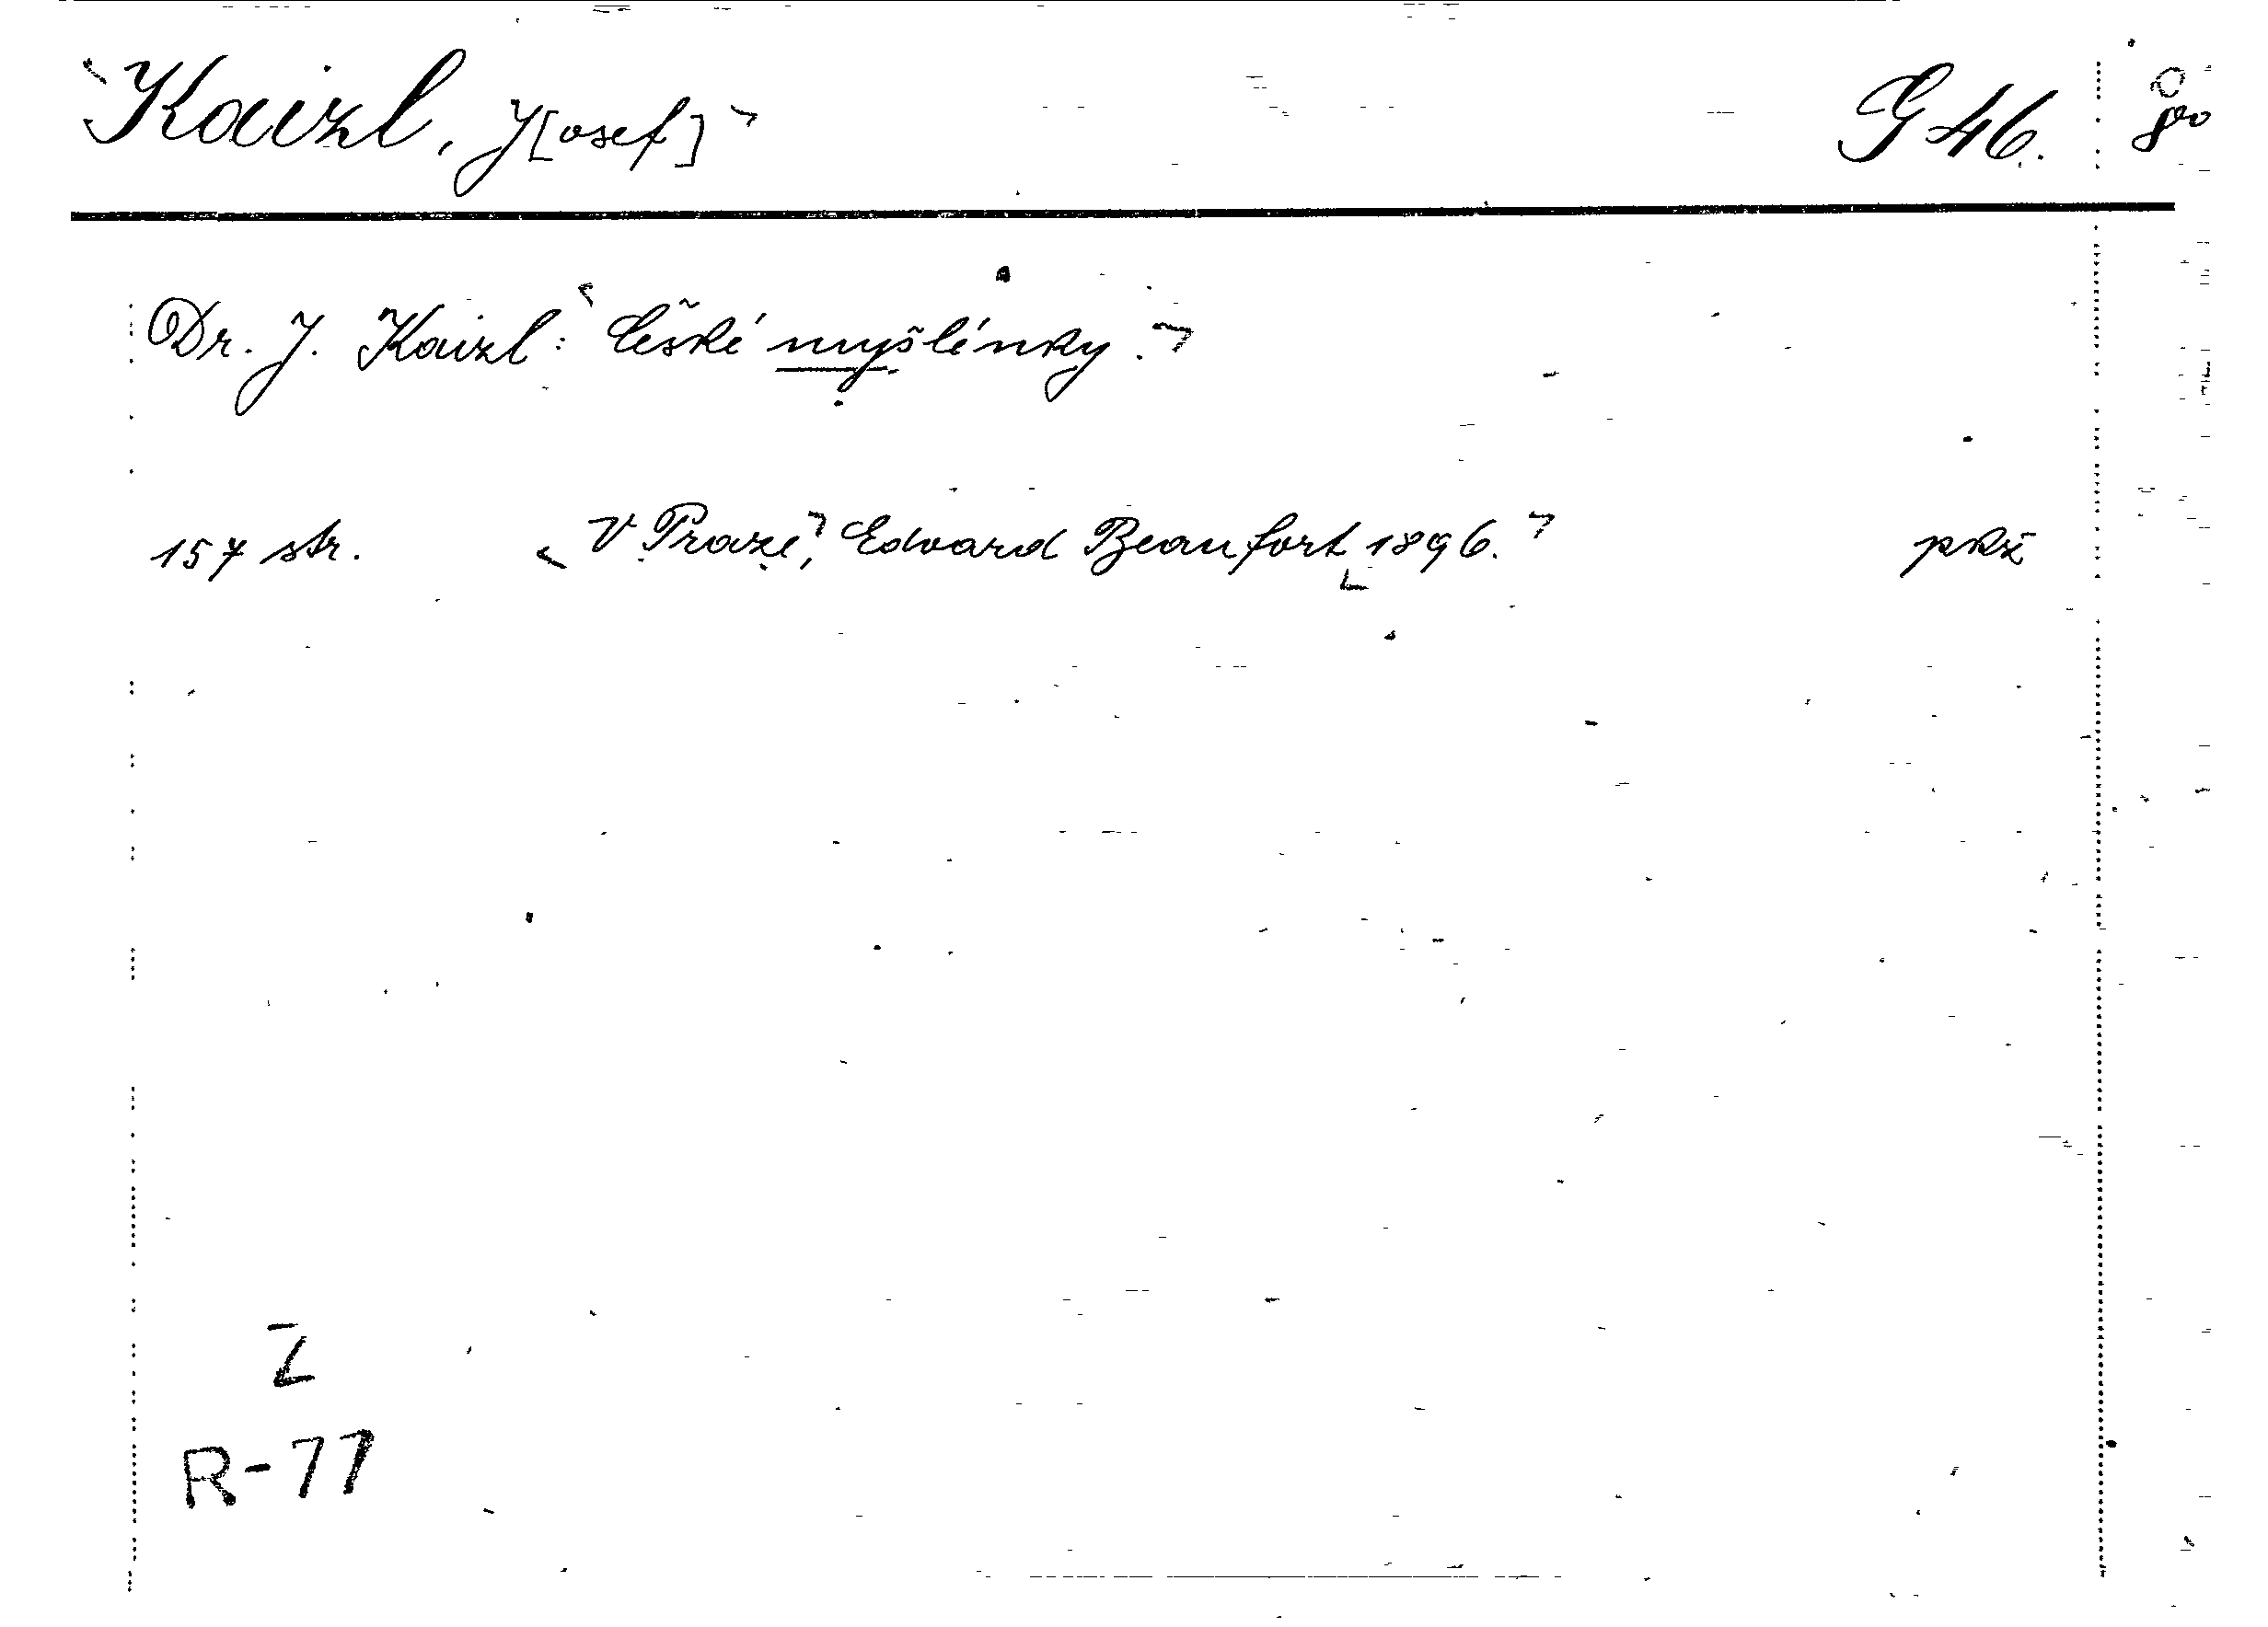 Kaizl, J[osef] G 46.
Dr. J. Kaizl: České myšlénky.
157 str. V Praze, Edvard Beaufort 1896. pkž
Z
R-77